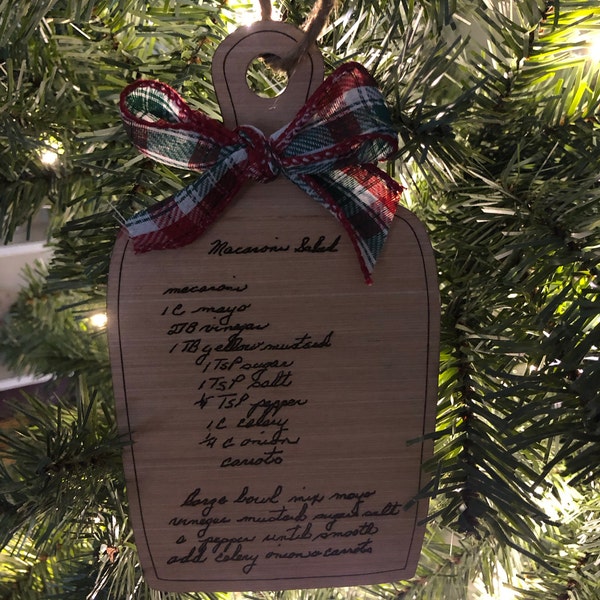 Macaroni Salad
macaroni
1 C mayo
2TB vinegar
1 TB yellow mustard
1 TSP sugar
1 TSP salt
¼ TSP pepper
1 C celery
¼ C onion
carrots
Large bowl mix mayo
vinegar mustard sugar salt
& pepper until smooth
add celery onion & carrots